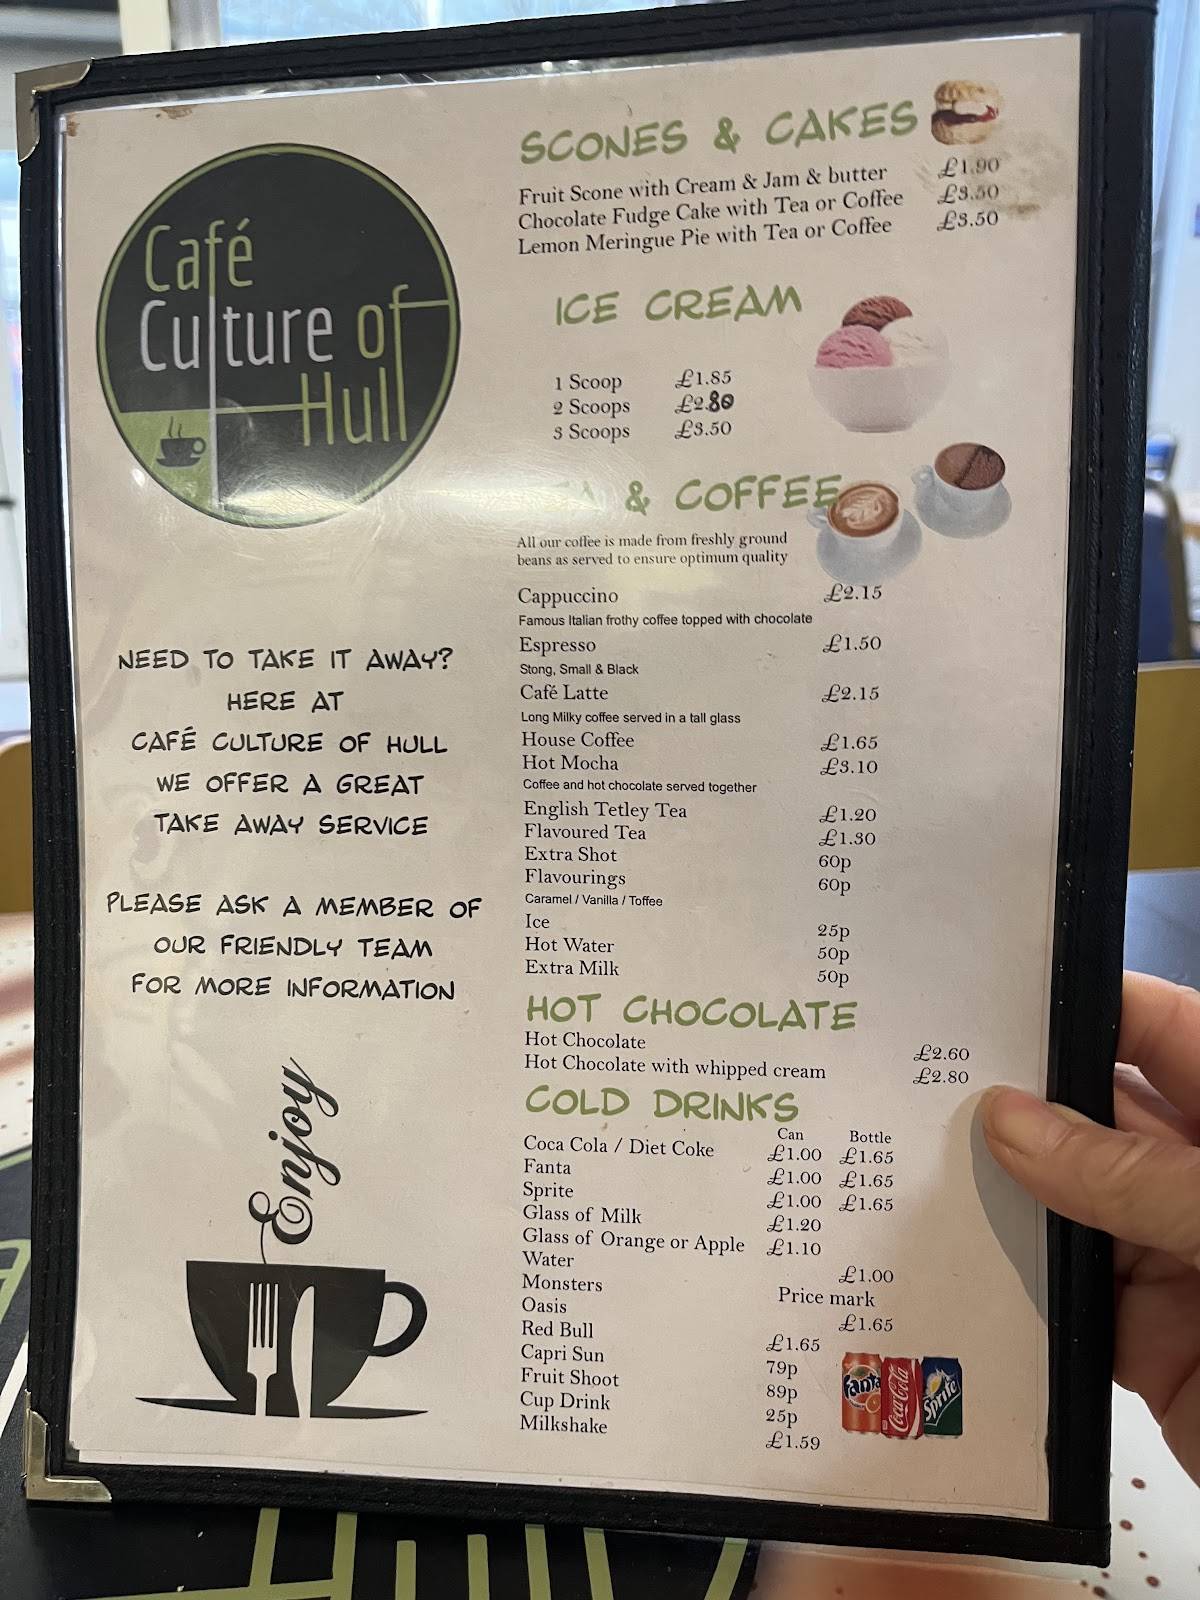 Café
Culture of
Hull
NEED TO TAKE IT AWAY?
HERE AT
CAFÉ CULTURE OF HULL
WE OFFER A GREAT
TAKE AWAY SERVICE
PLEASE ASK A MEMBER OF
OUR FRIENDLY TEAM
FOR MORE INFORMATION
Enjoy
SCONES & CAKES
Fruit Scone with Cream & Jam & butter £1.90
Chocolate Fudge Cake with Tea or Coffee £3.50
Lemon Meringue Pie with Tea or Coffee £3.50
ICE CREAM
1 Scoop £1.85
2 Scoops £2.80
3 Scoops £3.50
& COFFEE
All our coffee is made from freshly ground
beans as served to ensure optimum quality
Cappuccino £2.15
Famous Italian frothy coffee topped with chocolate
Espresso £1.50
Stong, Small & Black
Café Latte £2.15
Long Milky coffee served in a tall glass
House Coffee £1.65
Hot Mocha £3.10
Coffee and hot chocolate served together
English Tetley Tea £1.20
Flavoured Tea £1.30
Extra Shot 60p
Flavourings 60p
Caramel / Vanilla / Toffee
Ice 25p
Hot Water 50p
Extra Milk 50p
HOT CHOCOLATE
Hot Chocolate £2.60
Hot Chocolate with whipped cream £2.80
COLD DRINKS
Can Bottle
Coca Cola / Diet Coke £1.00 £1.65
Fanta £1.00 £1.65
Sprite £1.00 £1.65
Glass of Milk £1.20
Glass of Orange or Apple £1.10
Water £1.00
Monsters Price mark
Oasis £1.65
Red Bull £1.65
Capri Sun 79p
Fruit Shoot 89p
Cup Drink 25p
Milkshake £1.59
Fanta
Coca-Cola
Sprite
Hull